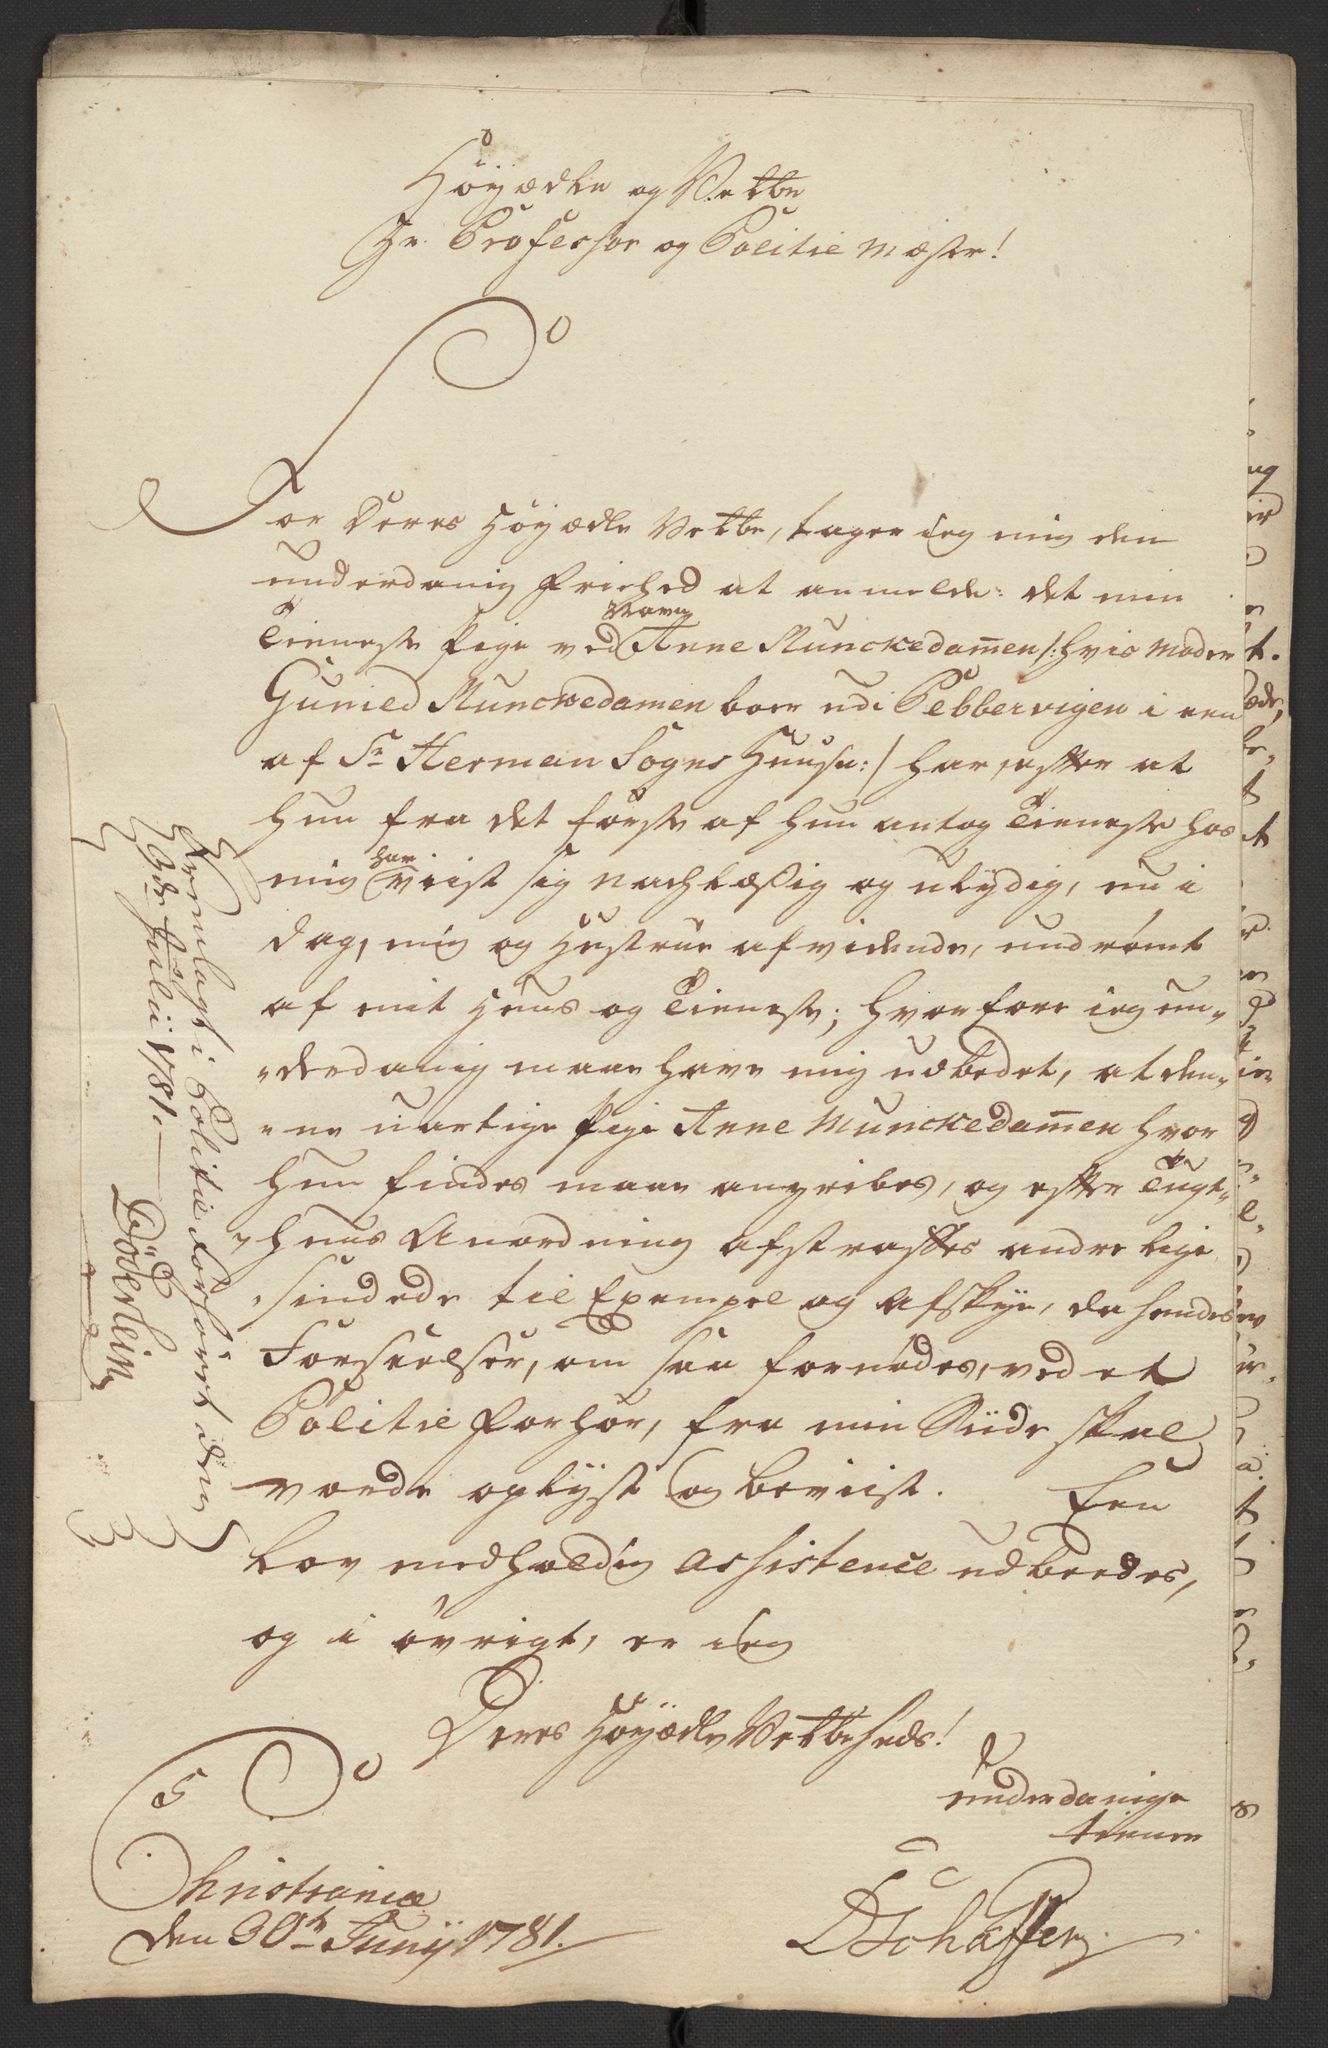 Höyædle og Velbr
Hr. Professor og Politie Mester!
For Deres Höyædle Velbr, tager ieg mig den
underdanig friehed at anmelde: det min
Tieneste Pige ved Navn Anne Munckedam̅en /: hvis Moder
Gunied Munckedamen boer udi Pebbervigen i een
af Sr Herman Sognes Huuse :/ har, efter at
hun fra det förste af hun antog Tieneste hos
mig har viist sig nachlæssig og ulydig, nu i
dag, mig og Hustrue afvidende, undrömt
af mit Huus og Tieneste; hvorfore ieg un„
„derdanig maae have mig udbedet, at den„
„ne uartige Pige Anne Munckedam̅en hvor
hun findes maae angribes, og efter Tugt„
„huus Anordning afstraffes andre lige
sindede til Exempel og Afskye, da hendes
Forseelser, om saa fornödes, ved et
Politie Forhör, fra min Siide skal
vorde oplyst og beviist. Een
lov medholdig assistence udbeedes,
og i övrigt, er ieg
Deres Höyædle Velbrheds!
underdanige
tiener
DSchäffer
Christiania
den 30te Junij 1781.
Fremlagt i Politie Forhöret den
2de Julii 1781.
Döderlein